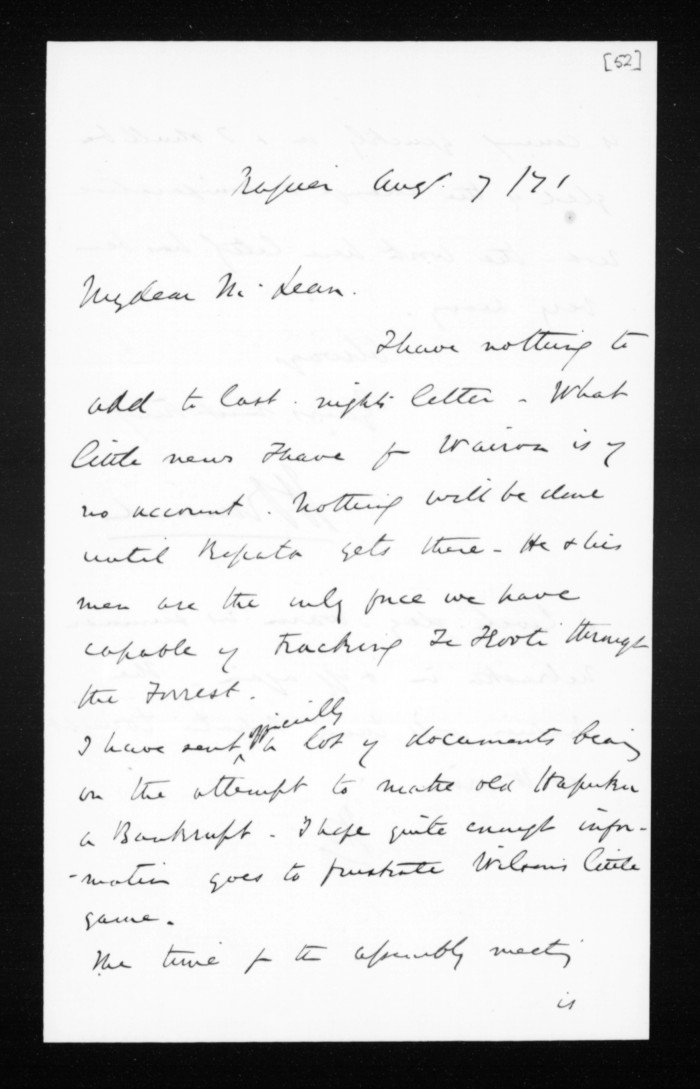 [52]
Napier Aug. 7 / 71
My dear McLean.
I have nothing to
add to last nights letter - What
little news I have fr Wairoa is of
no account. Nothing will be done
until Ropata gets there - He & his
men are the only force we have
capable of tracking Te Kooti through
the Forrest.
I have sent officially a lot of documents bearing
on the attempt to make old Hapuku
a Bankrupt - I hope quite enough infor-
-mation goes to frustrate Wilson's little
game.
The time for the assembly meeting
is